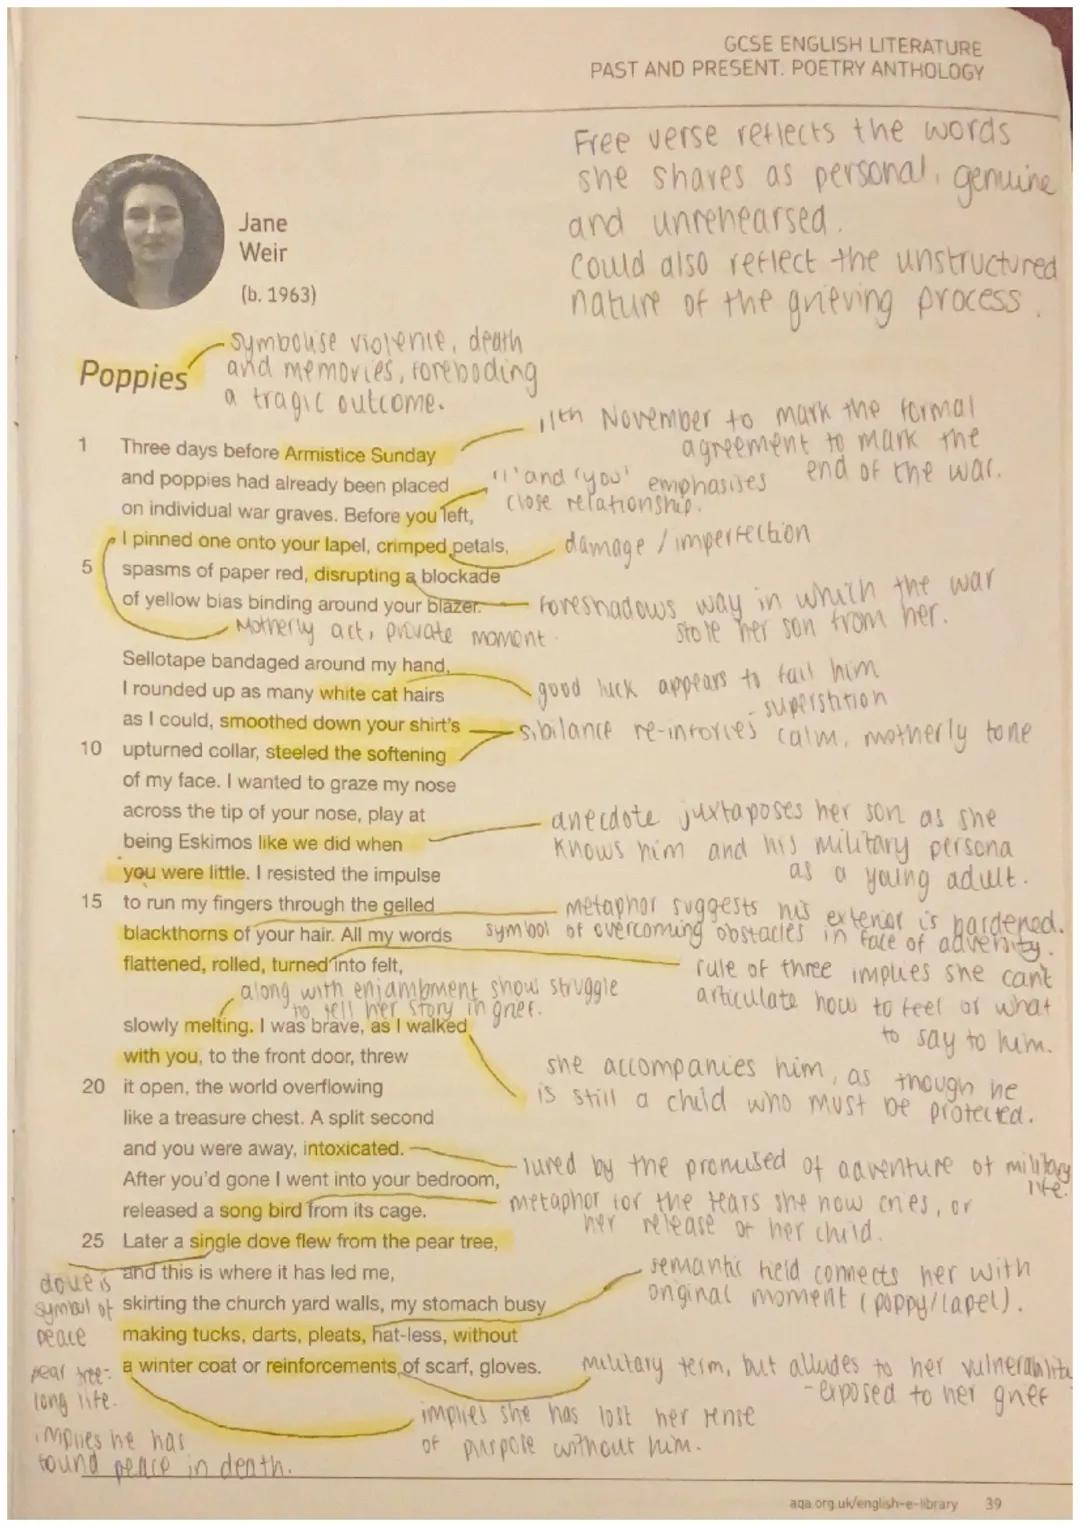 GCSE ENGLISH LITERATURE
PAST AND PRESENT. POETRY ANTHOLOGY
Free verse reflects the words
she shares as personal, genuine
and unrehearsed.
Could also reflect the unstructured
nature of the grieving process.
Jane
Weir
(b. 1963)
Symbolise violence, death
and memories, foreboding
a tragic outcome.
Poppies
11th November to mark the formal
agreement to mark the
end of the war.
1 Three days before Armistice Sunday
and poppies had already been placed
'I' and 'you' emphasises
close relationship.
on individual war graves. Before you left,
I pinned one onto your lapel, crimped petals,
damage / imperfection
5 spasms of paper red, disrupting a blockade
of yellow bias binding around your blazer.
foreshadows way in which the war
stole her son from her.
Motherly act, private moment.
Sellotape bandaged around my hand,
I rounded up as many white cat hairs
good luck appears to fail him
- superstition
as I could, smoothed down your shirt's
sibilance re-inforces calm, motherly tone
10 upturned collar, steeled the softening
of my face. I wanted to graze my nose
across the tip of your nose, play at
being Eskimos like we did when
anecdote juxtaposes her son as she
knows him and his military persona
as a young adult.
you were little. I resisted the impulse
15 to run my fingers through the gelled
metaphor suggests his exterior is hardened.
symbol of overcoming obstacles in face of adversity.
blackthorns of your hair. All my words
flattened, rolled, turned into felt,
rule of three implies she can't
articulate how to feel or what
to say to him.
along with enjambment show struggle
to tell her story in grief.
slowly melting. I was brave, as I walked
with you, to the front door, threw
she accompanies him, as though he
is still a child who must be protected.
20 it open, the world overflowing
like a treasure chest. A split second
and you were away, intoxicated.
lured by the promised of adventure of military
life.
After you'd gone I went into your bedroom,
released a song bird from its cage.
metaphor for the tears she now cries, or
her release of her child.
25 Later a single dove flew from the pear tree,
and this is where it has led me,
semantic field connects her with
original moment (poppy/lapel).
skirting the church yard walls, my stomach busy
making tucks, darts, pleats, hat-less, without
a winter coat or reinforcements of scarf, gloves.
military term, but alludes to her vulnerability
- exposed to her grief
dove is
symbol of
peace
pear tree:
long life.
implies he has
found peace in death.
implies she has lost her sense
of purpose without him.
aqa.org.uk/english-e-library 39